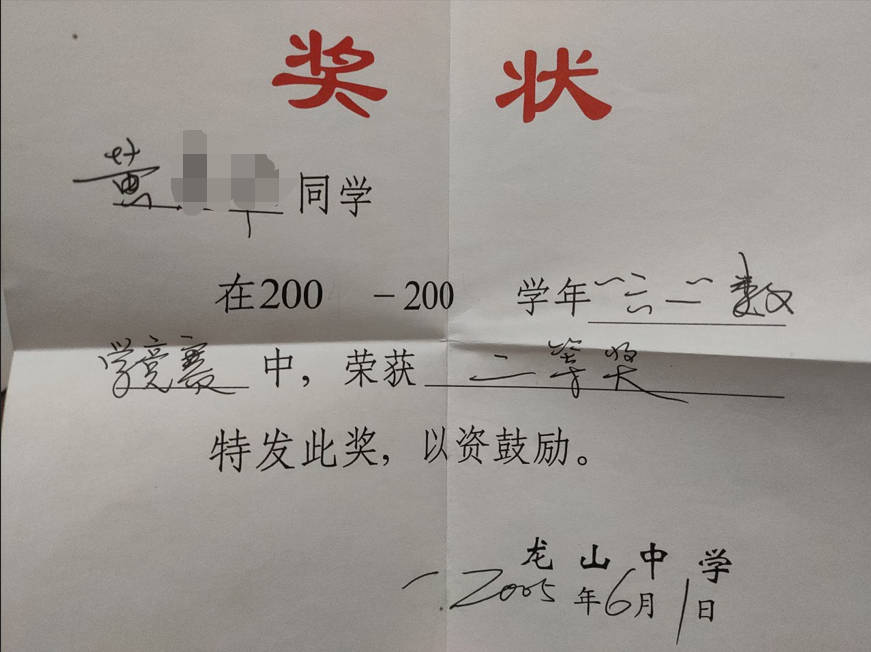 奖状
黄 同学
在200 -200 学年“六一”数
学竞赛中，荣获二等奖
特发此奖，以资鼓励。
龙山中学
2005年6月1日